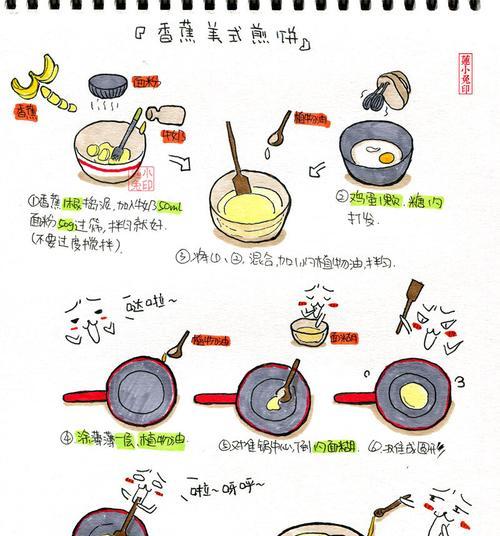 『香蕉美式煎饼』
蓮小兔印
面粉
香蕉
牛奶
植物油
小兔印
①香蕉1根,捣泥,加入牛奶50ml
面粉50g过筛,拌匀就好.
(不要过度搅拌).
②鸡蛋1颗.糖1勺
打发.
③将①、②.混合,加1勺植物油,拌匀.
哒啦~
植物油
面糊
④涂薄薄一层,植物油.
⑤对准锅中心,倒1勺面糊.
⑥
圆形
啦~呀呼~